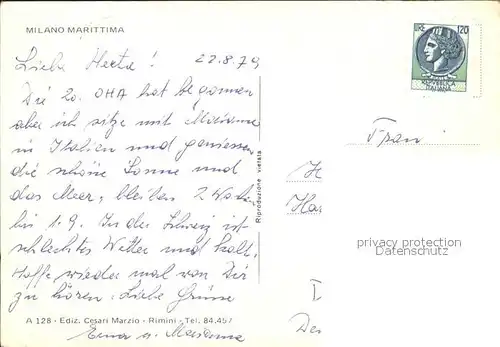 MILANO MARITTIMA
LIRE 120
REPVBBLICA
ITALIANA
Liebe Herta! 22.8.79
Die 20. OHA hat begonnen
aber ich sitze mit Marianne
in Italien und geniesse
die schöne Sonne und
das Meer, bleiben 2 Wochen
bis 1.9. In der Schweiz ist
schlechtes Wetter und kalt.
Hoffe wieder mal von Dir
zu hören. Liebe Grüsse
u. Marianne
Riproduzione vietata
Frau
privacy protection
Datenschutz
A 128 - Ediz. Cesari Marzio - Rimini - Tel. 84.457